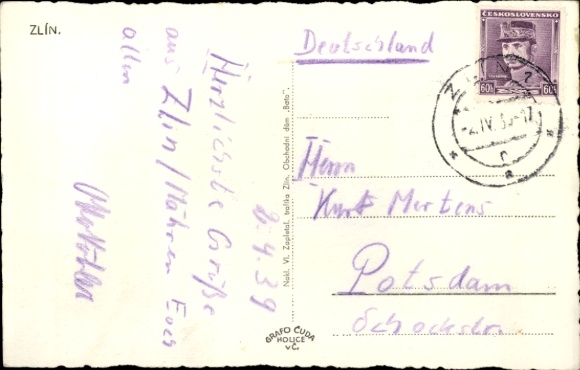 ZLÍN.
Herzlichste Grüße
aus Zlín/Mähren Euch
allen
2.4.39
Nakl. Vl. Zapletal, trafika Zlín, Obchodní dům „Baťa".
GRAFO ČUDA
HOLICE
v Č.
ČESKOSLOVENSKO
60h 60h
2.IV.39-17
Deutschland
Herrn
Kurt Mertens
Potsdam